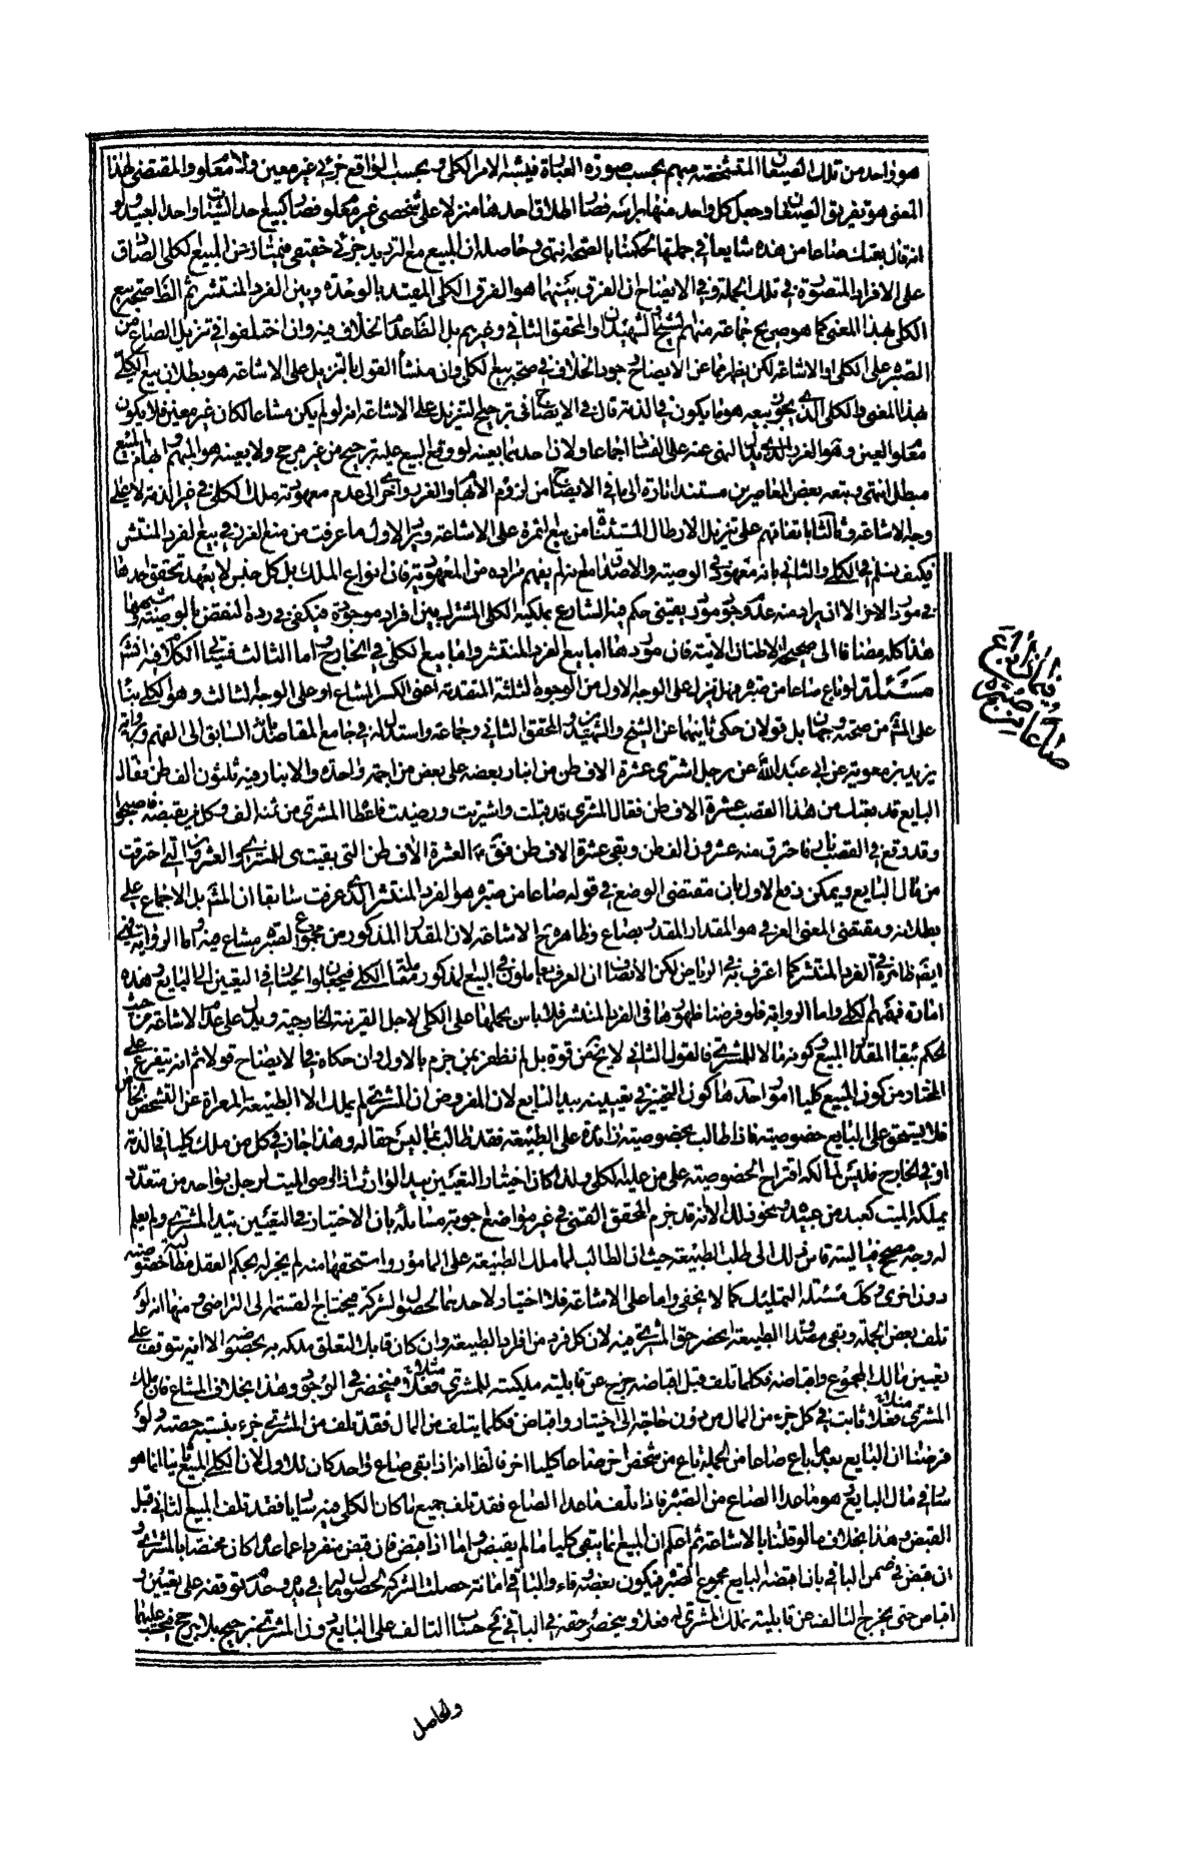 هو واحد من تلك الصيعان المتشخصة مبهم بحسب صورة العبارة فيشبه الامر الكلى وبحسب الواقع جزئى غير معين ولا معلوم والمقتضى لهذا
المعنى هو تفريق الصيعان وجعل كل واحد منها براسه فصار اطلاق احدها منزلا على شخصى غير معلوم فصار كبيع احد الشياه واحد العبيد ولو
انه قال بعتك صاعا من هذه شايعا فى جملتها لحكمنا بالصحة انتهى وحاصله ان المبيع مع الترديد جزئى حقيقى فيمتاز عن المبيع الكلى الصادق
على الافراد المتصورة فى تلك الجملة وفى الايضاح ان الفرق بينهما هو الفرق بين الكلى المقيد بالوحدة وبين الفرد المنتشر ثم الظاهر صحة بيع
الكلى بهذا المعنى كما هو صريح جماعة منهم الشيخ والشهيدان والمحقق الثانى وغيرهم بل الظاهر عدم الخلاف فيه وان اختلفوا فى تنزيل الصاع من
الصبرة على الكلى او الاشاعة لكن يظهر مما عن الايضاح وجود الخلاف فى صحة بيع الكلى وان منشأ القول بالتنزيل على الاشاعة هو بطلان بيع الكلى
بهذا المعنى والكلى الذى يجوز بيعه هو ما يكون فى الذمة قال فى الايضاح فى ترجيح التنزيل على الاشاعة انه لو لم يكن مشاعا لكان غير معين فلا يكون
معلوم العين وهو الغرر الذى يدل النهى عنه على الفساد اجماعا ولان احدهما بعينه لو وقع البيع عليه ترجيح من غير مرجح ولا بعينه هو المبهم وابهام المبيع
مبطل انتهى وتبعه بعض المعاصرين مستندا تارة الى ما فى الايضاح من لزوم الابهام والغرر واخرى الى عدم معهودية ملك الكلى فى غير الذمة لا على
وجه الاشاعة وثالثا باتفاقهم على تنزيل الارطال المستثناة من بيع الثمرة على الاشاعة ويرد الاول ما عرفت من منع الغرر فى بيع الفرد المنتشر
فكيف نسلم فى الكلى والثانى بانه معهود فى الوصية والاصداق مع انه لم يفهم مراده من المعهودية فان انواع الملك بل كل جنس لا يعهد تحقق احدها
فى مورد الاخر الا ان يراد منه عدم وجود مورد يقينى حكم فيه الشارع بملكية الكلى المشترك بين افراد موجودة فيكفى فى رده النقض بالوصية وشبهها
هذا كله مضافا الى صحيحة الاطنان الاتية فان موردها اما بيع الفرد المنتشر واما بيع الكلى فى الخارج واما الثالث فسيأتى الكلام فيه انشاء الله
مسئلة لو باع صاعا من صبرة فهل ينزل على الوجه الاول من الوجوه الثلثة المتقدمة اعنى الكسر المشاع او على الوجه الثالث وهو الكلى بناء
على المشهور من صحته وجهان بل قولان حكى ثانيهما عن الشيخ والشهيدين والمحقق الثانى وجماعة واستدل له فى جامع المقاصد بانه السابق الى الفهم وبرواية
بريد بن معوية عن ابى عبد الله عن رجل اشترى عشرة الاف طن من انبار بعضه على بعض من اجمة واحدة والانبار فيه ثلثون الف طن فقال
البايع قد بعتك من هذا القصب عشرة الاف طن فقال المشترى قد قبلت واشتريت ورضيت فاعطاه المشترى من ثمنه الف درهم ووكل من يقبضه فاصبحوا
وقد وقع فى القصب نار فاحترق منه عشرون الف طن وبقى عشرة الاف طن فقال العشرة الاف طن التى بقيت هى للمشترى والعشرون التى احترقت
من مال البايع ويمكن دفع الاول بان مقتضى الوضع فى قوله صاعا من صبرة هو الفرد المنتشر الذى عرفت سابقا ان المشهور بل الاجماع على
بطلانه ومقتضى المعنى العرفى هو المقدار المقدر بصاع وظاهره ح الاشاعة لان المقدار المذكور من مجموع الصبرة مشاع فيه واما الرواية فهى
ايضا ظاهرة فى الفرد المنتشر كما اعترف به فى الرياض لكن الانصاف ان العرف يعاملون فى البيع المذكور معاملة الكلى فيجعلون الخيار فى التعيين الى البايع وهذه
امارة فهمهم الكلى واما الرواية فلو فرضنا ظهورها فى الفرد المنتشر فلا باس بحملها على الكلى لاجل القرينة الخارجية وتدل على عدم الاشاعة من حيث
الحكم ببقاء المقدار المبيع وكونه مالا للمشترى فالقول الثانى لا يخ عن قوة بل لم نظفر بمن جزم بالاول وان حكاه فى الايضاح قولا ثم انه يتفرع على
المختار من كون المبيع كليا امور احدها كون التخيير فى تعيينه بيد البايع لان المفروض ان المشترى لم يملك الا الطبيعة المعراة عن التشخص الخاص
فلا يستحق على البايع خصوصية فاذا طالب بخصوصية زائدة على الطبيعة فقد طالب بما ليس حقا له وهذا جار فى كل من ملك كليا فى الذمة
او فى الخارج فليس لمالكه اقتراح الخصوصية على من عليه الكلى ولذا كان اختيار التعيين بيد الوارث اذا اوصى الميت لرجل بواحد من متعدد
يملكه الميت كعبد من عبيده ونحو ذلك الا انه قد جزم المحقق القمى فى غير موضع من اجوبة مسائله بان الاختيار فى التعيين بيد المشترى ولم يعلم
له وجه مصحح فيا ليته قاس ذلك الى طلب الطبيعة حيث ان الطالب لما ملك الطبيعة على المامور واستحقها منه لم يجز له بحكم العقل مطالبة خصوصية
دون اخرى وكك مسئلة التمليك كما لا يخفى واما على الاشاعة فلا اختيار لاحدهما لحصول الشركة فيحتاج القسمة الى التراضى ومنها انه لو
تلف بعض الجملة وبقى مصداق الطبيعة انحصر حق المشترى فيه لان كل فرد من افراد الطبيعة وان كان قابلا لتعلق ملكه به بخصوصه الا انه يتوقف على
تعيين مالك المجموع واقباضه فكلما تلف قبل اقباضه خرج عن قابلية ملكيته للمشترى فعلا فينحصر فى الموجود وهذا بخلاف المشاع فان ملك
المشترى فعلا ثابت فى كل جزء من المال من دون حاجة الى اختيار واقباض فكلما يتلف من المال فقد تلف من المشترى جزء بنسبة حصته ولو
فرضنا ان البايع بعد ما باع صاعا من الجملة باع من شخص اخر صاعا كليا اخر فالظاهر انه اذا بقى صاع واحد كان للاول لان الكلى المبيع ثانيا انما هو
سار فى مال البايع وهو ما عدا الصاع من الصبرة فاذا تلف ما عدا الصاع فقد تلف جميع ما كان الكلى فيه ساريا فقد تلف المبيع الثانى قبل
القبض وهذا بخلاف ما لو قلنا بالاشاعة ثم اعلم ان المبيع انما يبقى كليا ما لم يقبض واما اذا قبض فان قبض منفردا عما عداه كان مختصا بالمشترى
ان قبض فى ضمن الباقى بان اقبضه البايع مجموع الصبرة فيكون بعضه وفاء والباقى امانة حصلت الشركة لحصول ماله فى يده وعدم توقفه على تعيين و
اقباض حتى يخرج التالف عن قابلية تملك المشترى له فعلا وينحصر حقه فى الباقى فح حساب التالف على البايع دون المشترى ترجيح بلا مرجح فيحسب عليهما
والحاصل
فيما لو باع
صاعا من صبرة